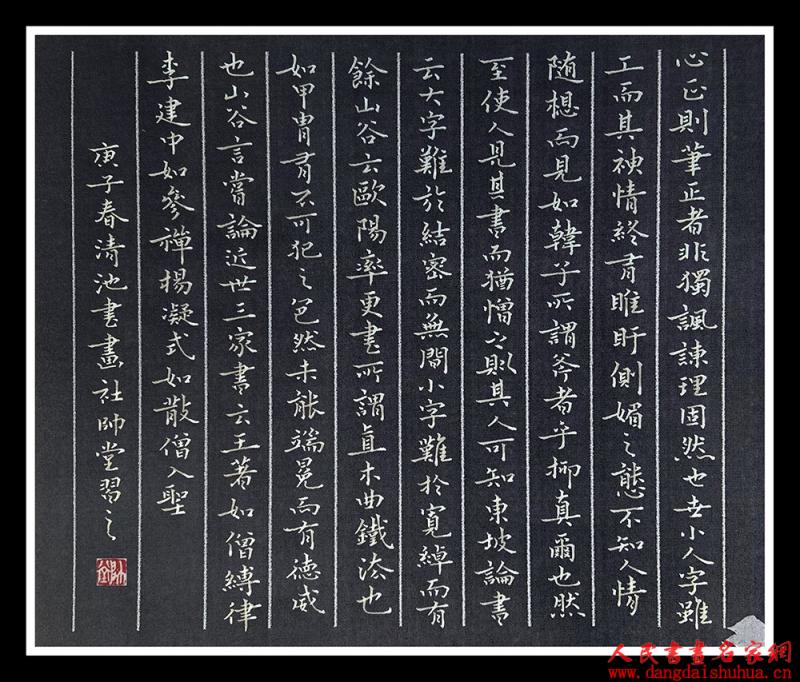 心正則筆正者非獨諷諫理固然也世小人字雖
工而其神情終有睢盱側媚之態不知人情
随想而見如韓子所謂斧者乎抑真爾也然
至使人見其書而猶憎之則其人可知東坡論書
云大字難於結密而無間小字難於寬綽而有
餘山谷云歐陽率更書所謂直木曲鐵法也
如甲胄有不可犯之色然未能端冕而有德威
也山谷言嘗論近世三家書云王著如僧縛律
李建中如參禪楊凝式如散僧入聖
庚子春清池書畫社帥堂習之
人民書畫名家網
www.dangdaishuhua.cn